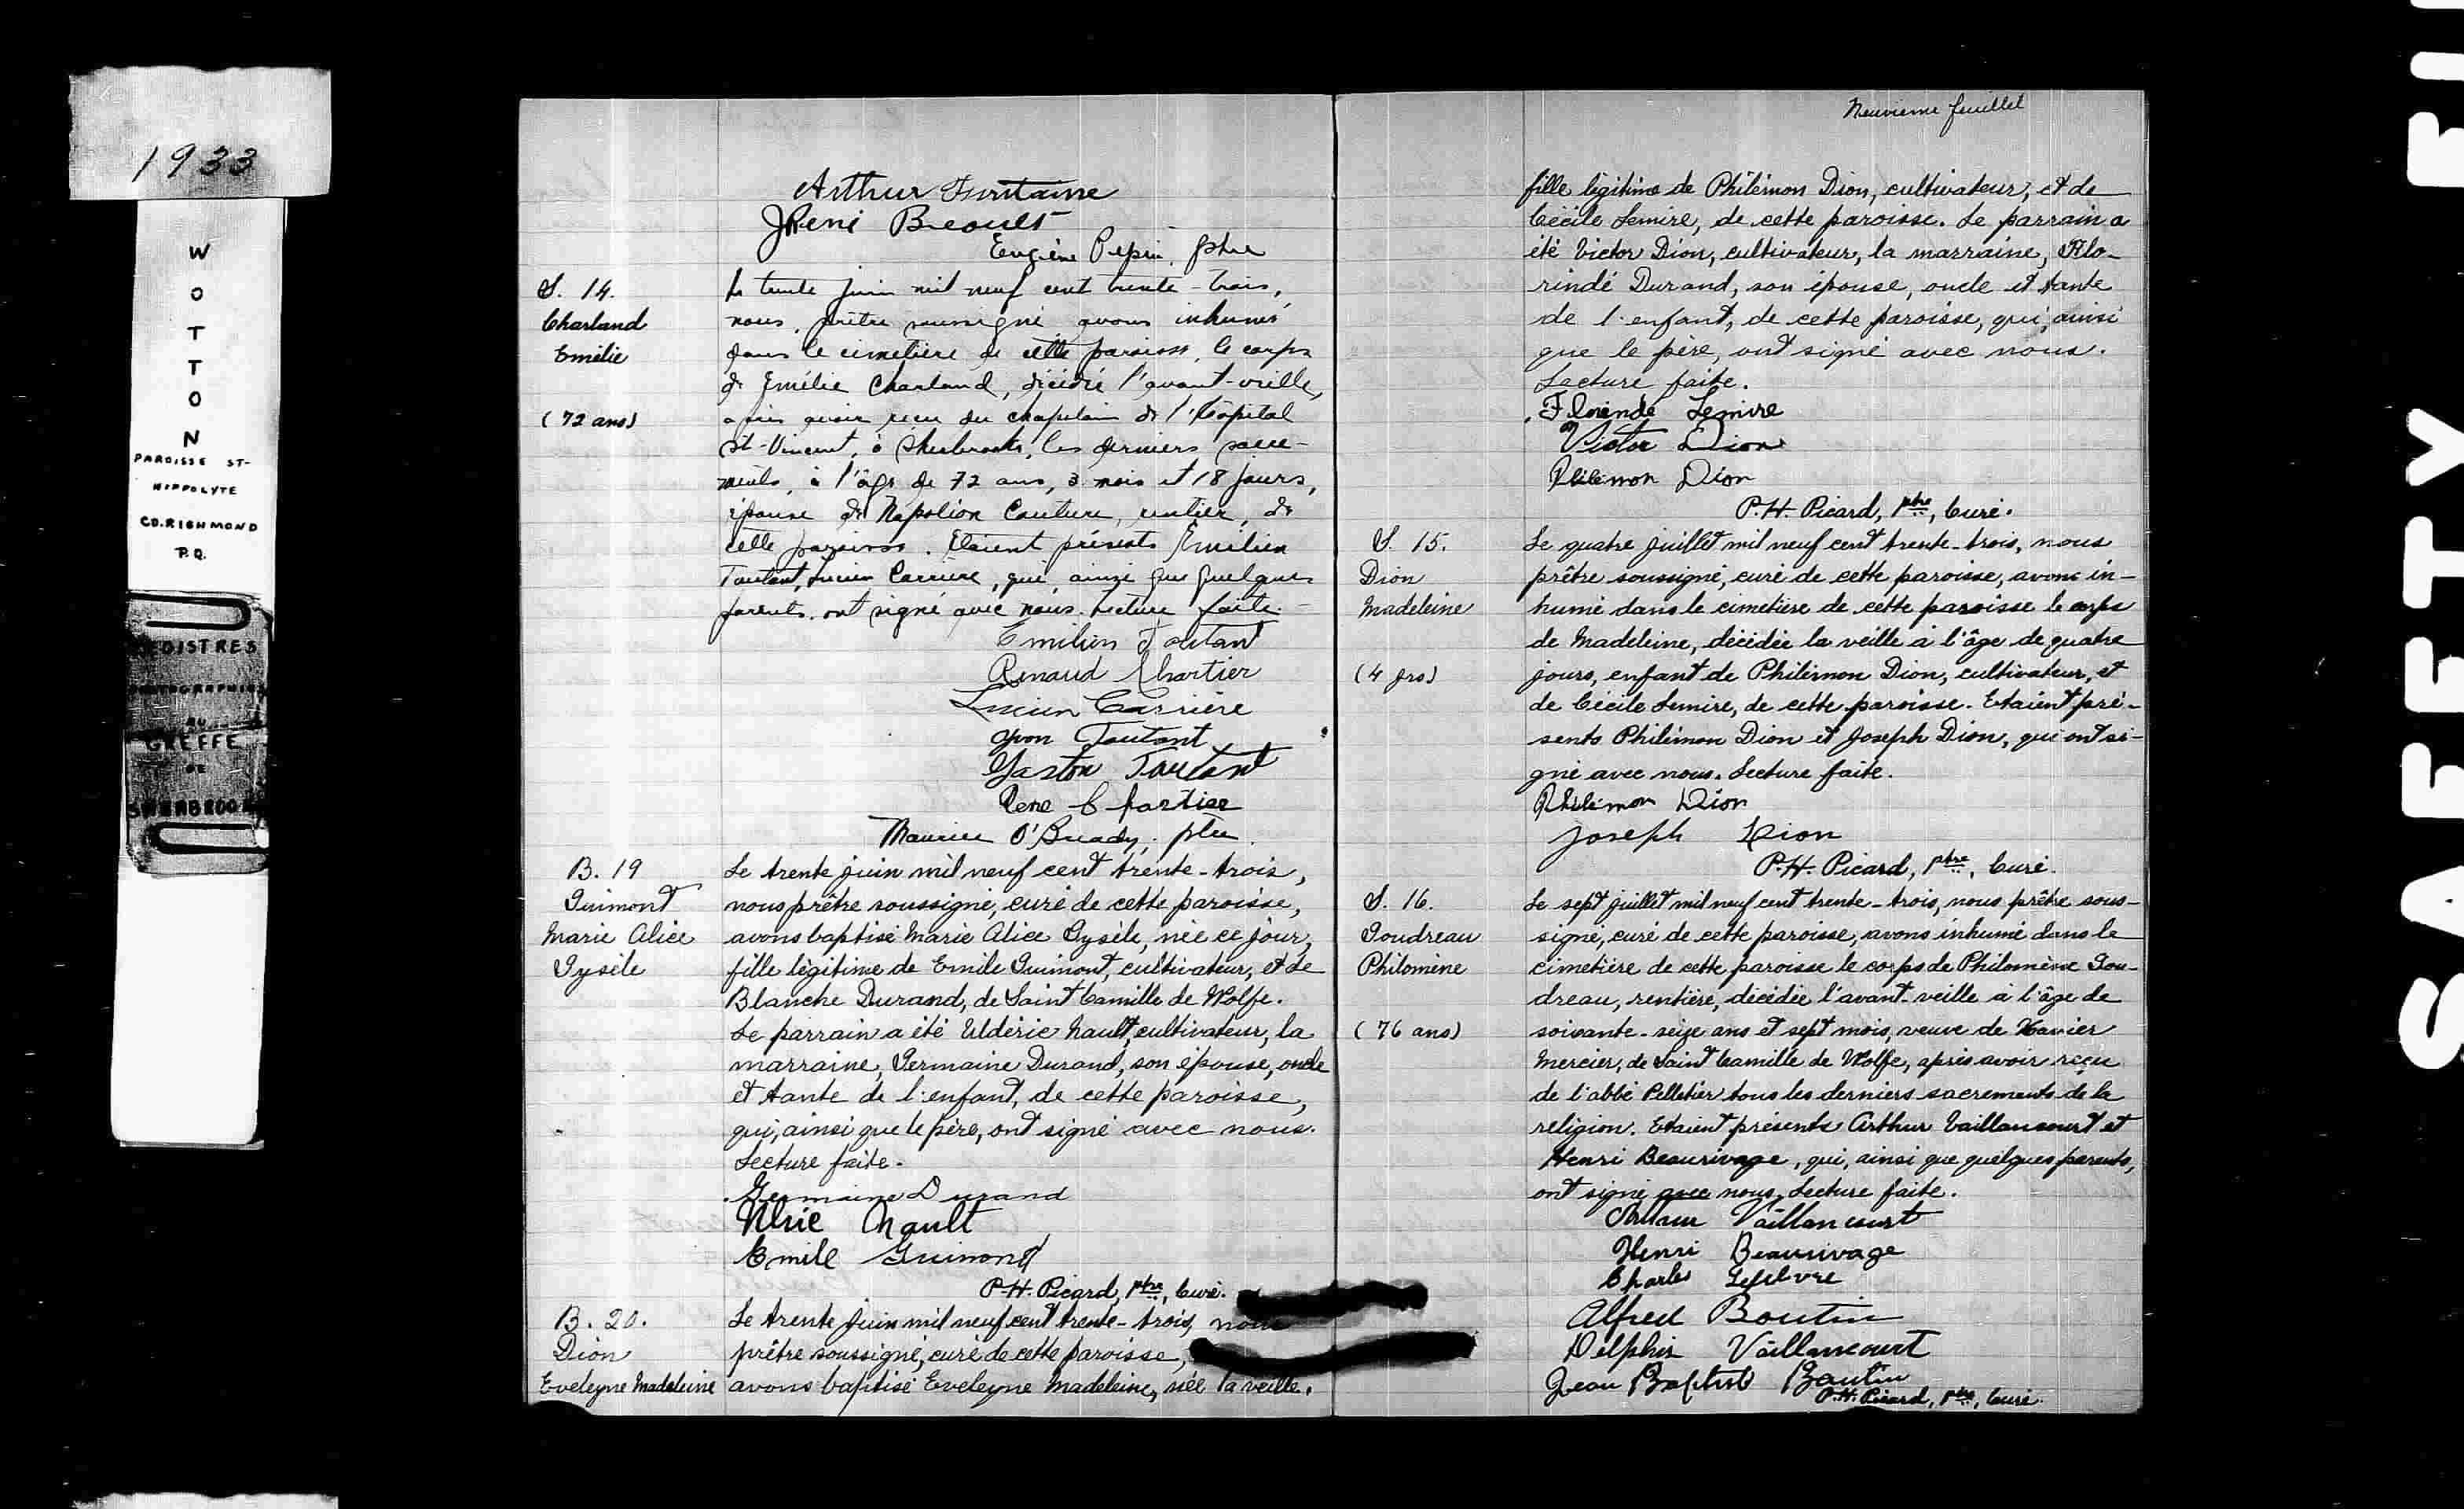 1933
W
O
T
T
O
N
PAROISSE ST-
HIPPOLYTE
CO. RICHMOND
P.Q.
REGISTRES
PHOTOGRAPHIES
AU
GREFFE
DE
SHERBROOKE
SAFETY
Arthur Fontaine
JRené Beoult
Eugène Pepin, ptre
S. 14.
Charland
Emélie
(72 ans)
Le trente juin mil neuf cent trente-trois,
nous, prêtre soussigné avons inhumé
dans le cimetière de cette paroisse, le corps
de Emélie Charland, décédée l'avant-veille,
après avoir reçu du chapelain de l'hôpital
St-Vincent, à Sherbrooke, les derniers sacre-
ments, à l'âge de 72 ans, 3 mois et 18 jours,
épouse de Napoléon Couture, rentier, de
cette paroisse. Etaient présents Emilien
Toutant, Lucien Carrière, qui, ainsi que quelques
parents, ont signé avec nous. Lecture faite.-
Emilien Toutant
Renaud Chartier
Lucien Carrière
Yvon Toutant
Gaston Toutant
René Chartier
Maurice O'Bready, ptre
B. 19
Guimont
Marie Alice
Gysèle
Le trente juin mil neuf cent trente-trois,
nous prêtre soussigné, curé de cette paroisse,
avons baptisé Marie Alice Gysèle, née ce jour,
fille légitime de Emile Guimont, cultivateur, et de
Blanche Durand, de Saint Camille de Wolfe.
Le parrain a été Uldéric Nault, cultivateur, la
marraine, Germaine Durand, son épouse, oncle
et tante de l'enfant, de cette paroisse,
qui, ainsi que le père, ont signé avec nous.
Lecture faite.
Germaine Durand
Ulric Nault
Emile Guimond
P.-H. Picard, ptre, Curé.
B. 20.
Dion
Eveleyne Madeleine
Le trente juin mil neuf cent trente-trois, nous
prêtre soussigné, curé de cette paroisse,
avons baptisé Eveleyne Madeleine, née la veille,
Neuvieme feuillet
fille légitime de Philémon Dion, cultivateur, et de
Cécile Lemire, de cette paroisse. Le parrain a
été Victor Dion, cultivateur, la marraine, Flo-
rindé Durand, son épouse, oncle et tante
de l'enfant, de cette paroisse, qui, ainsi
que le père, ont signé avec nous.
Lecture faite.
Florinde Lemire
Victor Dion
Philémon Dion
P.-H. Picard, ptre, Curé.
S. 15.
Dion
Madeleine
(4 jrs)
Le quatre juillet mil neuf cent trente-trois, nous
prêtre soussigné, curé de cette paroisse, avons in-
humé dans le cimetière de cette paroisse le corps
de Madeleine, décédée la veille à l'âge de quatre
jours, enfant de Philémon Dion, cultivateur, et
de Cécile Lemire, de cette paroisse. Etaient pré-
sents Philémon Dion et Joseph Dion, qui ont si-
gné avec nous. Lecture faite.
Philémon Dion
Joseph Dion
P.-H. Picard, ptre, Curé.
S. 16.
Goudreau
Philomène
(76 ans)
Le sept juillet mil neuf cent trente-trois, nous prêtre sous-
signé, curé de cette paroisse, avons inhumé dans le
cimetière de cette paroisse le corps de Philomène Gou-
dreau, rentière, décédée l'avant-veille à l'âge de
soixante-seize ans et sept mois, veuve de Xavier
Mercier, de Saint Camille de Wolfe, après avoir reçu
de l'abbé Pelletier tous les derniers sacrements de la
religion. Etaient présents Arthur Vaillancourt et
Henri Beaurivage, qui, ainsi que quelques parents,
ont signé avec nous. Lecture faite.
Arthur Vaillancourt
Henri Beaurivage
Charles Lefebvre
Alfred Boutin
Delphis Vaillancourt
Jean Baptiste Boutin
P.-H. Picard, ptre, Curé.